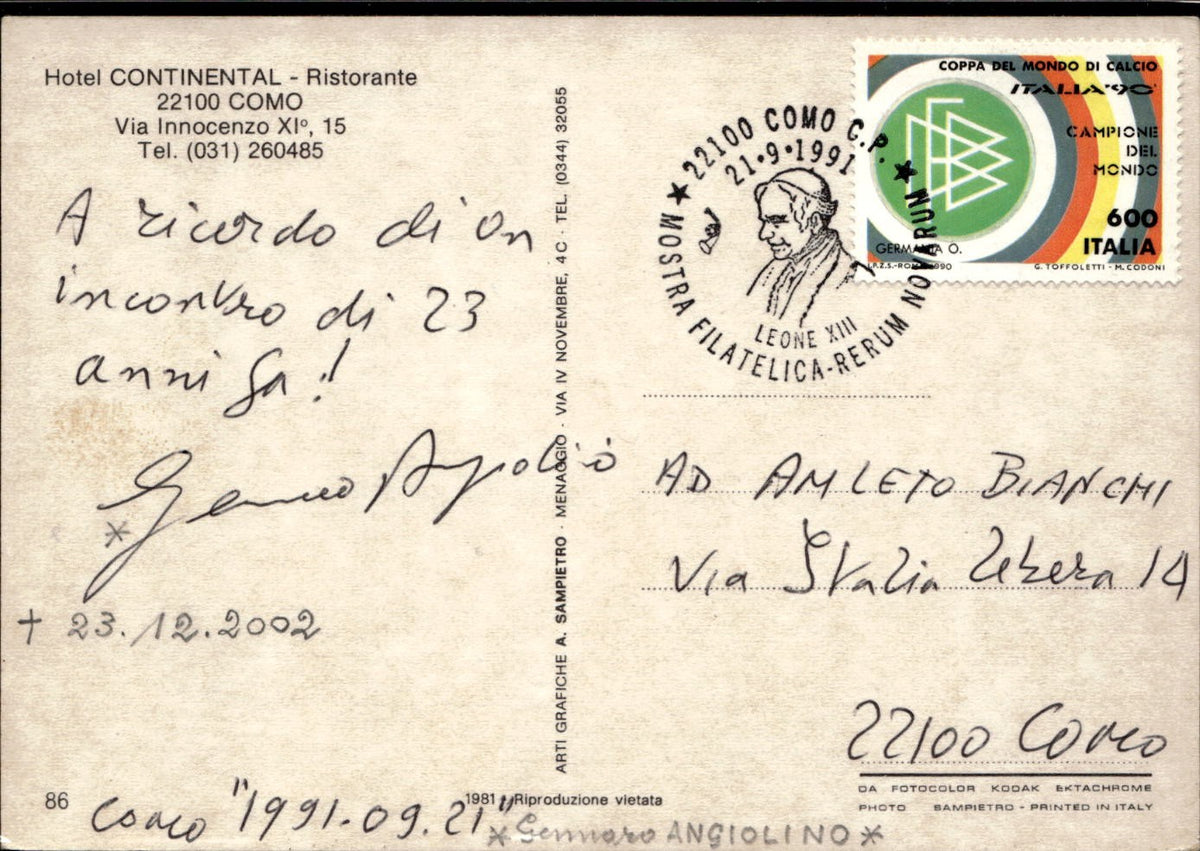 Hotel CONTINENTAL - Ristorante
22100 COMO
Via Innocenzo XIº, 15
Tel. (031) 260485
A ricordo di un
incontro di 23
anni fa!
Gennaro Angiolino
*
+ 23.12.2002
86
Como "1991.09.21"
* Gennaro ANGIOLINO *
1981 - Riproduzione vietata
ARTI GRAFICHE A. SAMPIETRO · MENAGGIO · VIA IV NOVEMBRE, 4 C · TEL. (0344) 32055
★ 22100 COMO C.P. ★
21·9·1991
LEONE XIII
MOSTRA FILATELICA-RERUM NOVARUM
COPPA DEL MONDO DI CALCIO
ITALIA'90
CAMPIONE
DEL
MONDO
600
ITALIA
GERMANIA O.
I.P.Z.S.-ROMA 1990
G. TOFFOLETTI - M. CODONI
AD AMLETO BIANCHI
Via Italia Libera 14
22100 Como
DA FOTOCOLOR KODAK EKTACHROME
PHOTO SAMPIETRO - PRINTED IN ITALY